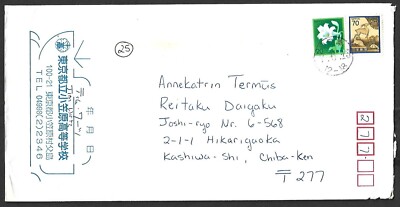 25
70
年 月 日
東京都立小笠原高等学校
100-21 東京都小笠原村父島
TEL 04998(2)2346
Annekatrin Termüs
Reitaku Daigaku
Joshi-ryo Nr. 6-568
2-1-1 Hikarigaoka
Kashiwa-Shi, Chiba-Ken
〒277
277